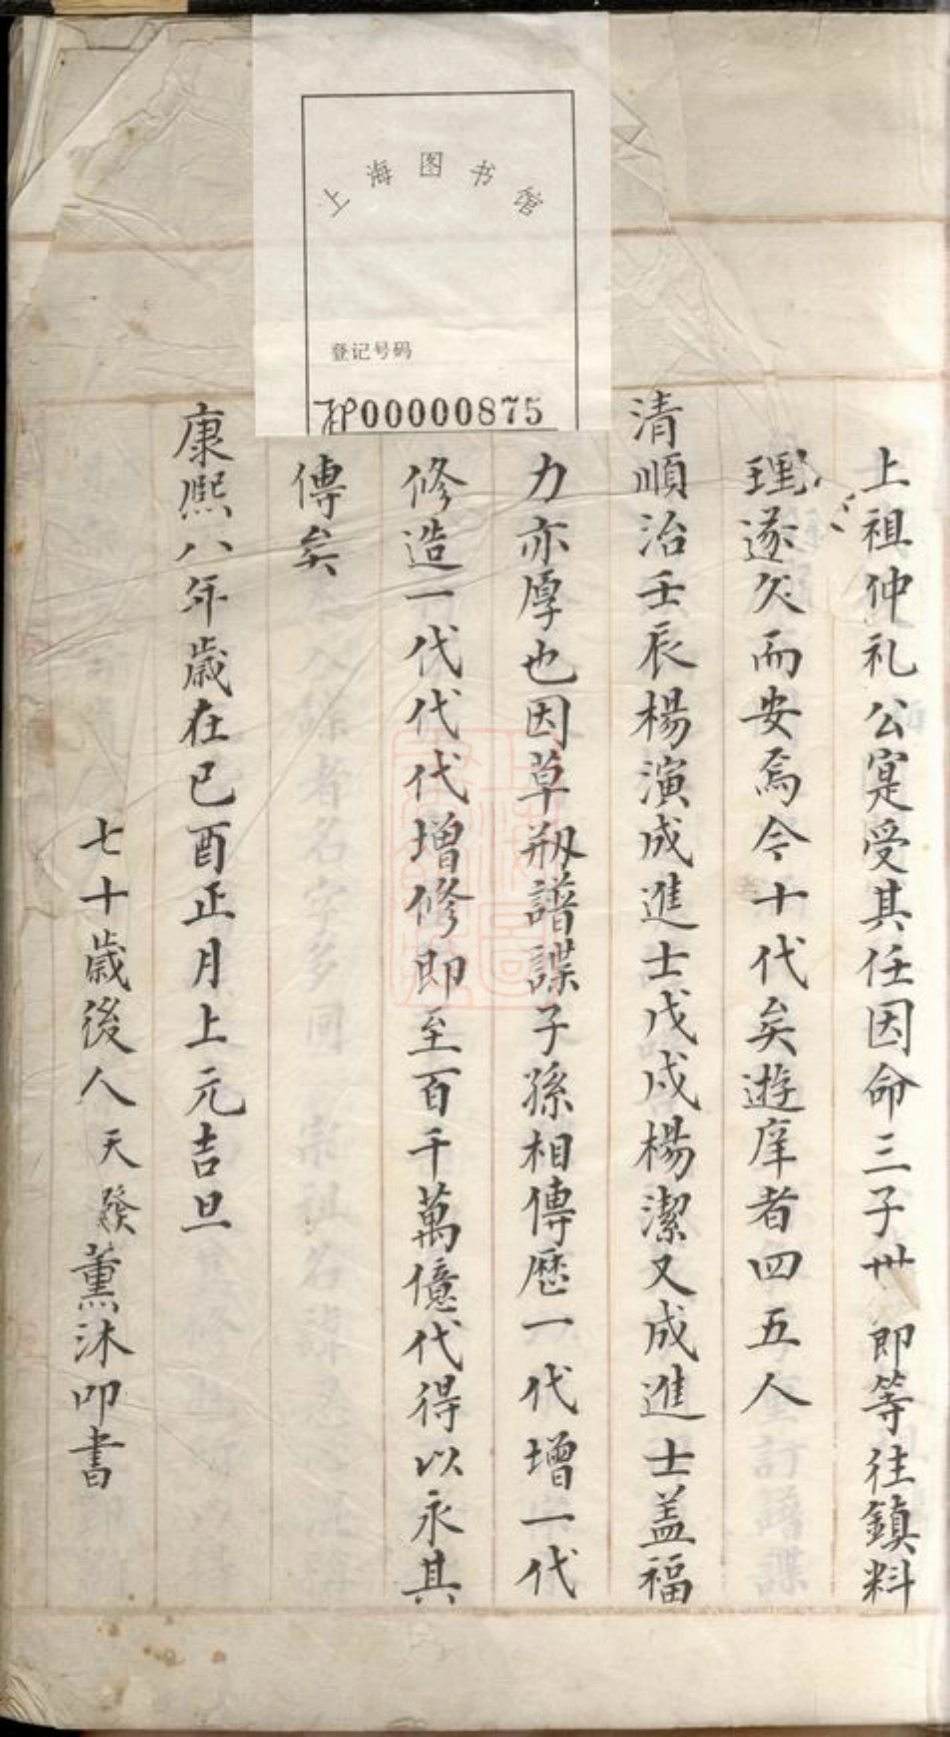 上海图书馆
登记号码
00000875
上祖仲礼公寔受其任因命三子卅即等往鎮料
理遂久而安焉今十代矣遊庠者四五人
清順治壬辰楊演成進士戊戌楊潔又成進士盖福
力亦厚也因草剏譜諜子孫相傳歷一代增一代
修造一代代代增修即至百千萬億代得以永其
傳矣
康熙八年歲在已酉正月上元吉旦
七十歲後人天發薰沐叩書